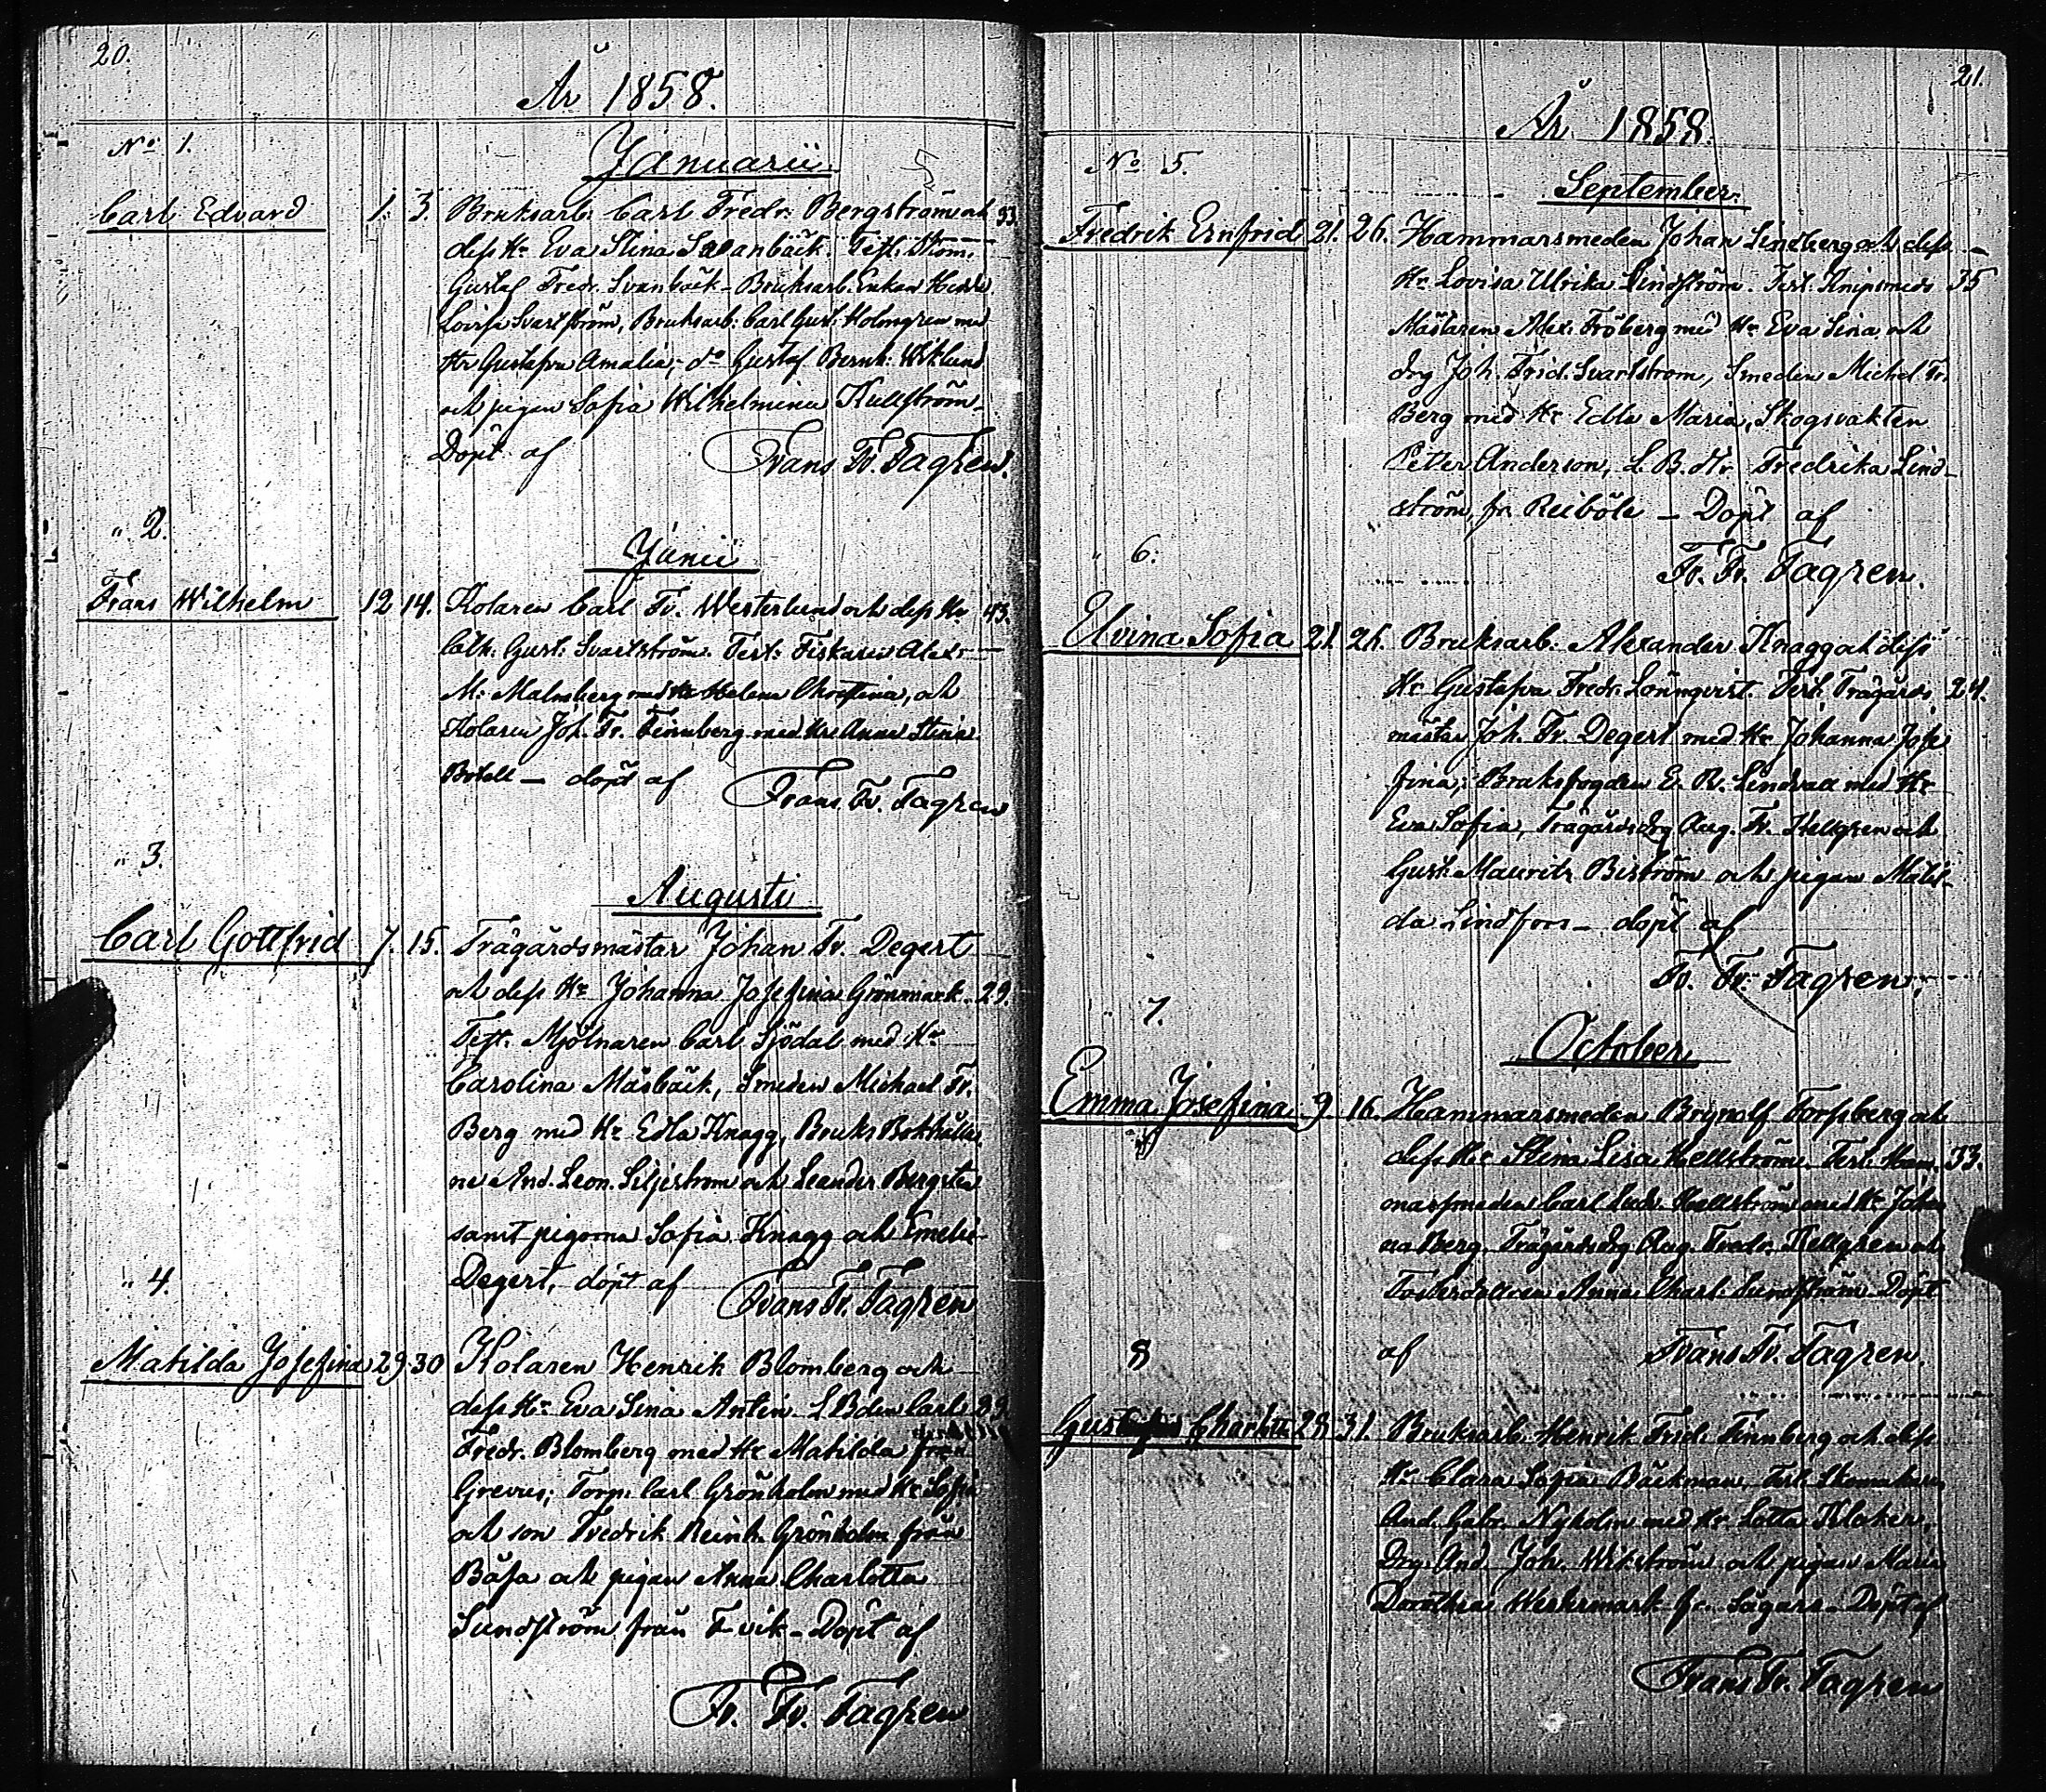 20.
År 1858.
No 1.
Januarii.
Carl Edvard 1. 3. Bruksarb. Carl Fredr. Bergström och 33
dess Hr Eva Stina Svanbäck. Test. Skom.
Gustaf Fredr. Svanbäck - Bruksarb. Enkan Hedda
Lovisa Svartström, Bruksarb. Carl Gust. Holmgren med
Hr Gustafva Amalia, do Gustaf Bernh. Wiklund
och pigan Sofia Wilhelmina Kullström -
Döpt af Frans Fr. Tagren.
" 2.
Junii
Frans Wilhelm 12 14. Kolaren Carl Fr. Westerlund och dess Hr 43.
Cath. Gust. Svartström. Test. Fiskaren Alex.
M. Malmberg med Hr Helena Christina, och
Kolaren Joh. Fr. Finnberg med Hr Anna Stina
Botell - döpt af Frans Fr. Tagren
" 3.
Augusti
Carl Gottfrid 7. 15. Trägårdsmästar Johan Fr. Degert
och dess Hr Johanna Josefina Grönmark. 29.
Test. Mjölnaren Carl Sjödal med Hr
Carolina Måsbäck, Smeden Michael Fr.
Berg med Hr Edla Knagg, Bruks Bokhålla
ne And. Leon. Liljeström och Leander Bergsten
samt pigorna Sofia Knagg och Emelie
Degert, döpt af Frans Fr. Tagren
" 4.
Matilda Josefina 29 30 Kolaren Henrik Blomberg och
dess Hr Eva Lina Antin. L Bden Carl 39.
Fredr. Blomberg med Hr Matilda från
Greveus; Torp. Carl Grönholm med Hr Sofia
och son Fredrik Reinh. Grönholm från
Båsa och pigan Anna Charlotta
Sundström från F-vik - Döpt af
Fr. Fr. Tagren
21.
År 1858.
No 5.
September.
Fredrik Ernfrid 21. 26. Hammarsmeden Johan Lindberg och dess
Hr Lovisa Ulrika Lindström. Test. Knipsmeds 35
Mästaren Alex. Fröberg med Hr Eva Lina, och
drg Joh. Frid. Svartström, Smeden Michel Fr.
Berg med Hr Edla Maria, Skogsvakten
Petter Anderson, L. B. Hr Fredrika Lind-
ström, fr. Reiböle - Döpt af
Fr. Fr. Tagren.
" 6.
Elvina Sofia 21. 26. Bruksarb. Alexander Knagg och dess
Hr Gustafva Fredr. Lönnqvist. Test. Trägårds 24.
mästar Joh. Fr. Degert med Hr Johanna Jose
fina, Bruksfogden E. R. Lindvall med Hr
Eva Sofia, Trägårdsdrg Aug. Fr. Hellgren och
Gust. Mauritz Biström och pigan Matil-
da Lindfors - döpt af
Fr. Fr. Tagren.
" 7.
October
Emma Josefina 9 16. Hammarsmeden Brynolf Forssberg och
dess Hr Stina Lisa Hellström. Test. Ham 33.
marsmeden Carl Hellström med Hr Johan
na Berg, Trägårdsdrg Aug. Fredr. Hellgren och
Fosterdottren Anna Charl. Sundström. Döpt
af Frans Fr. Tagren.
8
Charlotta 28 31. Bruksarb. Henrik Frid. Finnberg och dess
Hr Clara Sofia Bäckman. Test. Skomakaren
And. Gabr. Nyholm med Hr Lotta Kloker,
Drg. And. Joh. Wikström och pigan Maria
Dorothea Westermark fr. Sågars - Döpt af
Frans Fr. Tagren